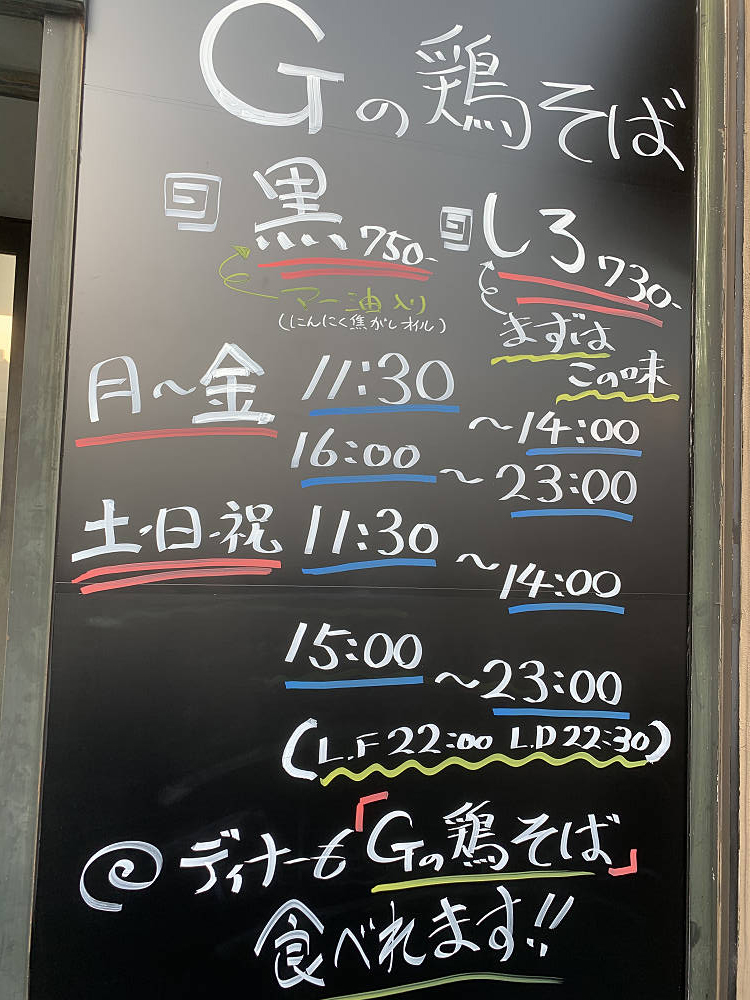 Gの鶏そば
回 黒 750- 回 しろ 730-
マー油入り
(にんにく焦がしオイル)
まずは
この味
月〜金 11:30 〜14:00
16:00 〜23:00
土・日・祝 11:30 〜14:00
15:00 〜23:00
(L.F 22:00 L.D 22:30)
@ディナーも「Gの鶏そば」
食べれます!!